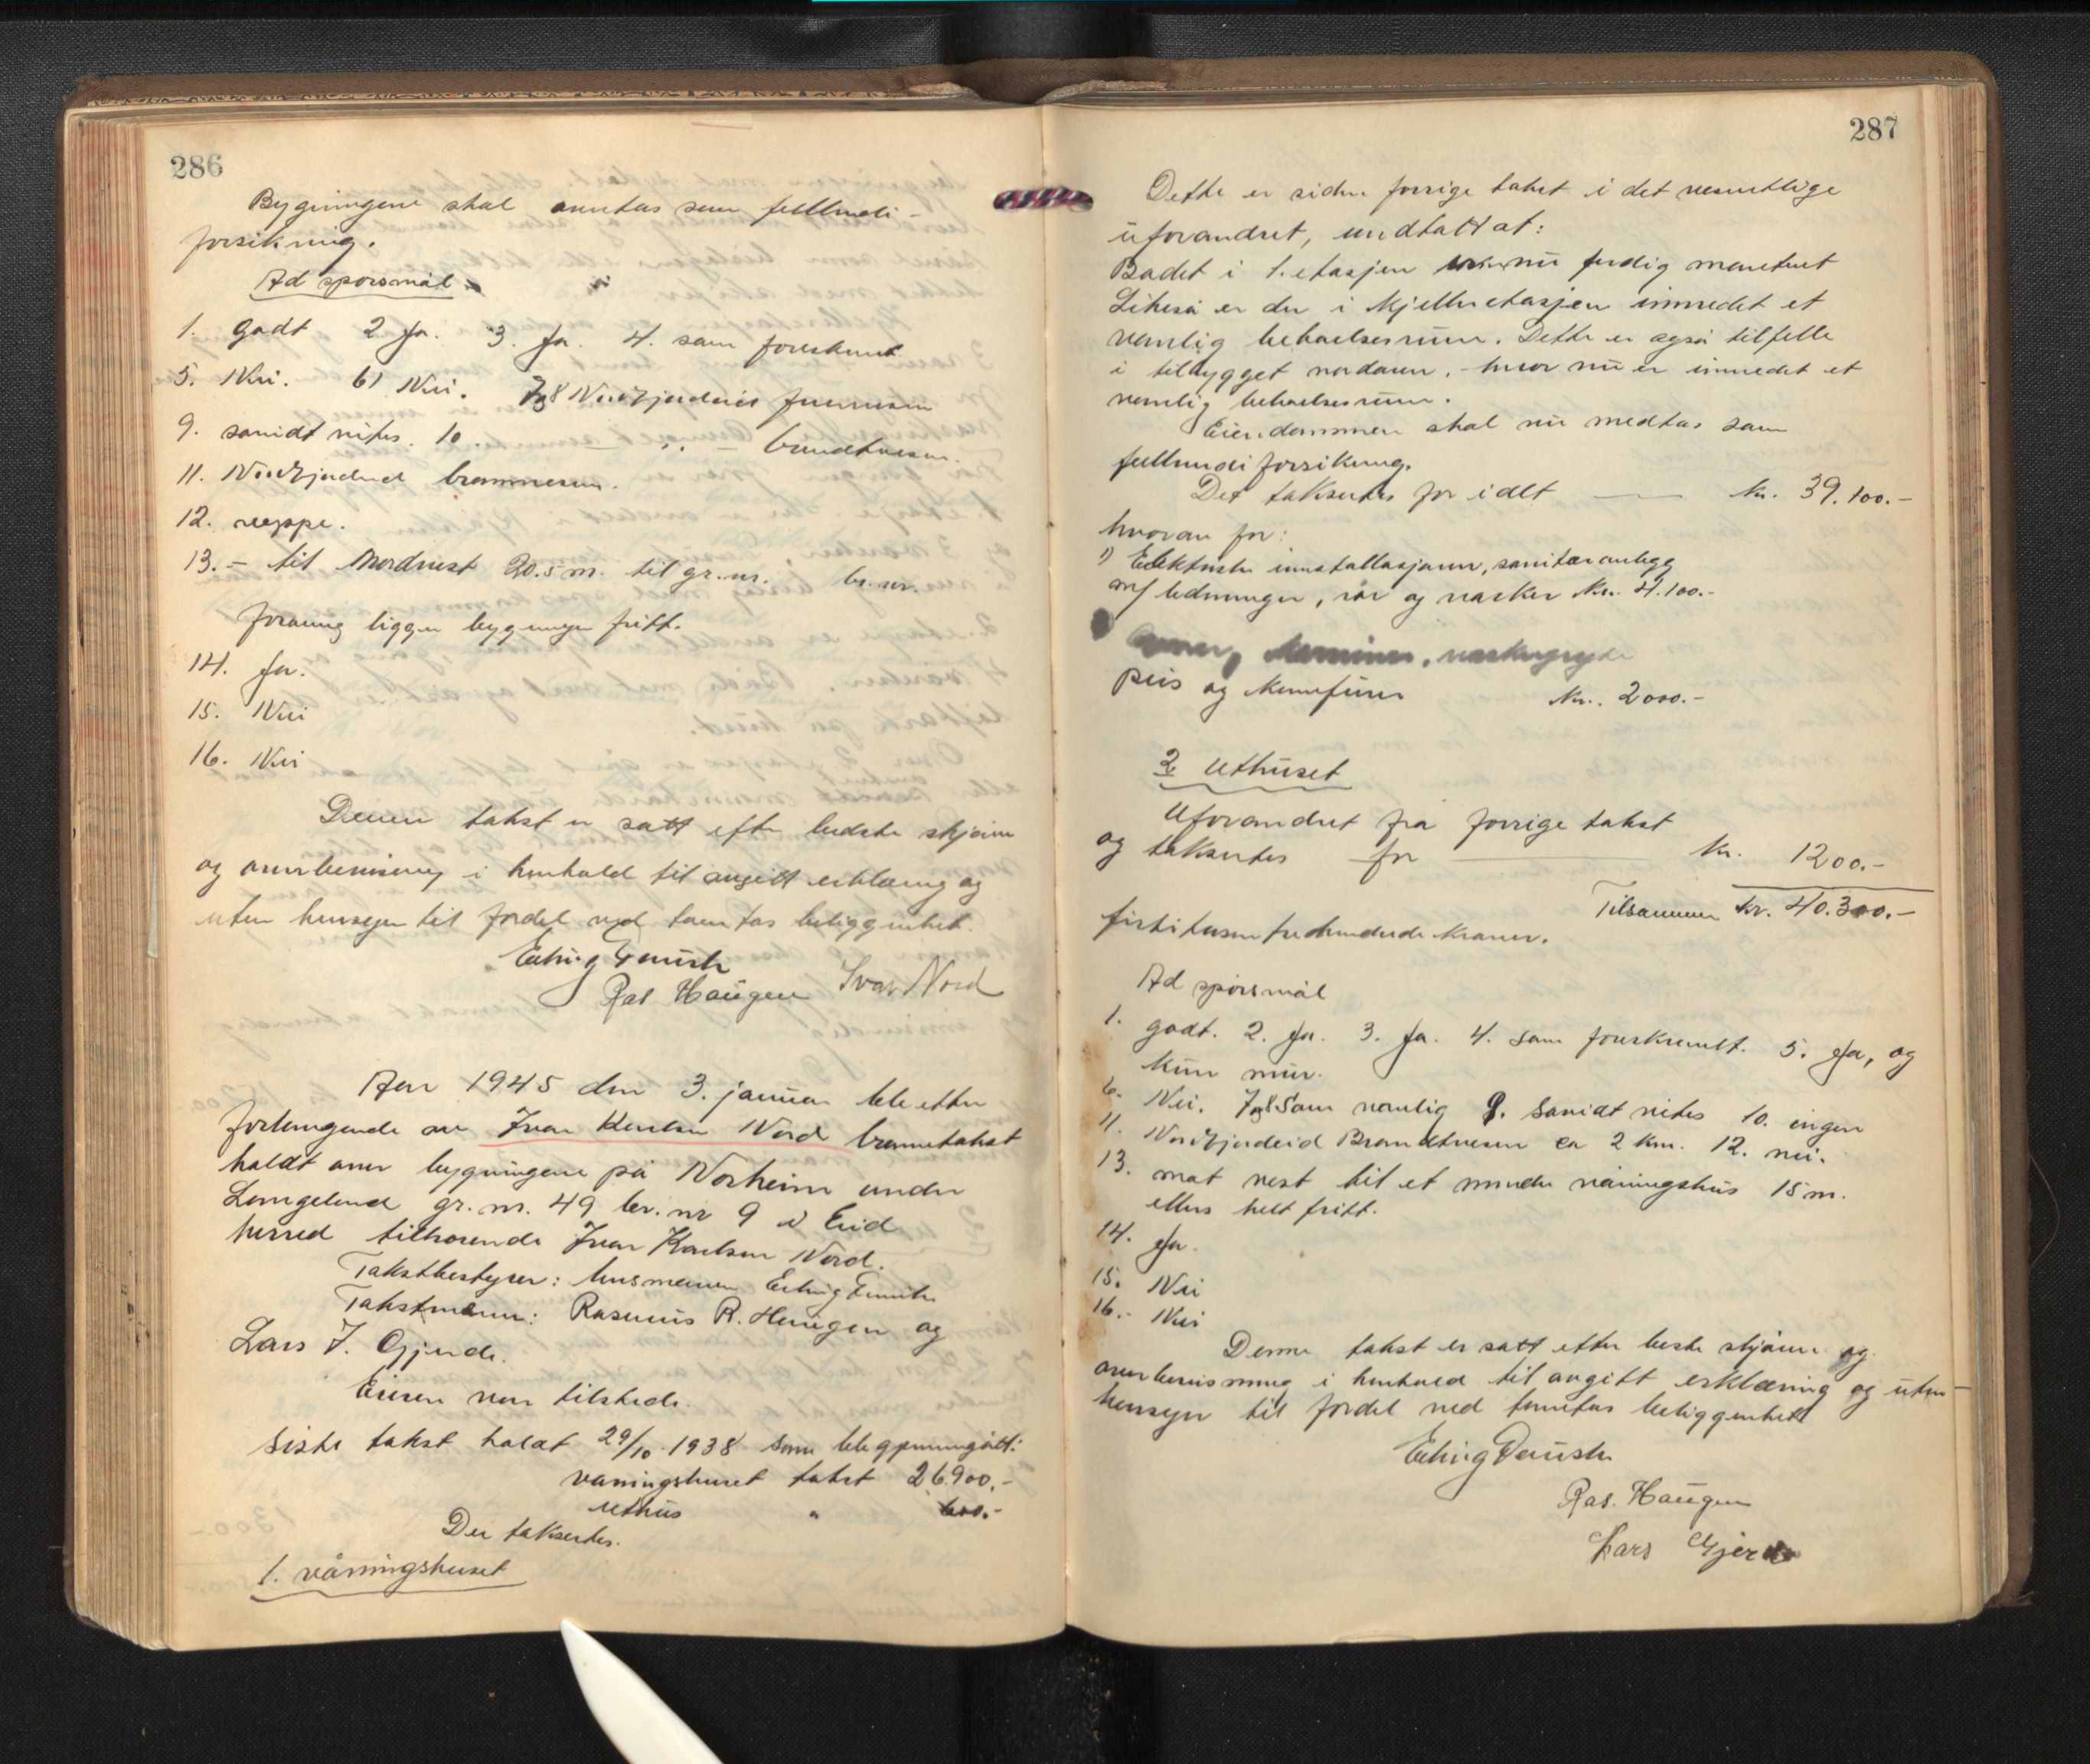 286
Bygningene skal anntas som fullverdi-
forsikring.
Ad spørsmål
1. godt 2. Ja. 3. Ja. 4. som foreskrevet
5. Nei. 6) Nei. 7og8 Nordfjordeid
9. sånidt vites. 10. — " — brandvesen.
11. Nordfjordeid brannvesen.
12. neppe.
13. - til Nordvest 20.5 m. til gr.nr. br.nr.
forøvrig ligger bygningen fritt.
14. Ja.
15. Nei
16. Nei
Denne takst er satt efter bedste skjønn
og overbevisning i henhold til avgitt erklæring og
uten hensyn til fordel ved tomtas beliggenhet.
Erling Taush
Ras Haugen Ivar Nord
Aar 1945 den 3. januar ble etter
forlangende av Ivar Karlsen Nord branntakst
holdt over bygningene på Norheim under
Langeland gr.nr. 49 br.nr 9 i Eid
herred tilhørende Ivar Karlsen Nord.
Takstbestyrer: Erling
Takstmenn: Rasmus R. Haugen og
Lars J. Gjerde.
Eieren var tilstede.
Siste takst holdt 29/10 1938 som ble gjennomgått:
våningshuset takst 26.900.-
uthus " 600.-
Der takseertes.
1. våningshuset
287
Dette er siden forrige takst i det vesentlige
uforandret, undtatt at:
Badet i 1. etasjen nu ferdig montert
Likeså er der i kjelleretasjen innredet et
vanlig beboelsesrum. Dette er også tilfelle
i tilbygget nordover, - hvor nu er innredet et
vanlig beboelsesrum.
Eiendommen skal nu medtas som
fullverdiforsikring.
Det takseertes for i alt — kr. 39.100.-
hvorav for:
1) Elektriske innstallasjoner, sanitæranlegg
m/ ledninger, rør og vasker kr. 4.100.-
Ovner, kaminer, vaskegryte
peis og komfurer kr. 2000.-
2 Uthuset
Uforandret fra forrige takst
og takseertes for — kr. 1200.-
Tilsammen kr. 40.300.-
førtitusen trehundrede kroner.
Ad spørsmål
1. godt. 2. Ja. 3. Ja. 4. som foreskrevet. 5. Ja, og
kun mur.
6. Nei. 7og8 Som vanlig 9. sånidt vites 10. ingen
11. Nordfjordeid Brandvesen ca 2 km. 12. nei.
13. mot vest til et mindre våningshus 15 m.
ellers helt fritt.
14. Ja.
15. Nei
16.- Nei
Denne takst er satt etter beste skjønn og
overbevisning i henhold til avgitt erklæring og uten
hensyn til fordel ved tomtas beliggenhet
Erling Taush
Ras. Haugen
Lars Gjerde